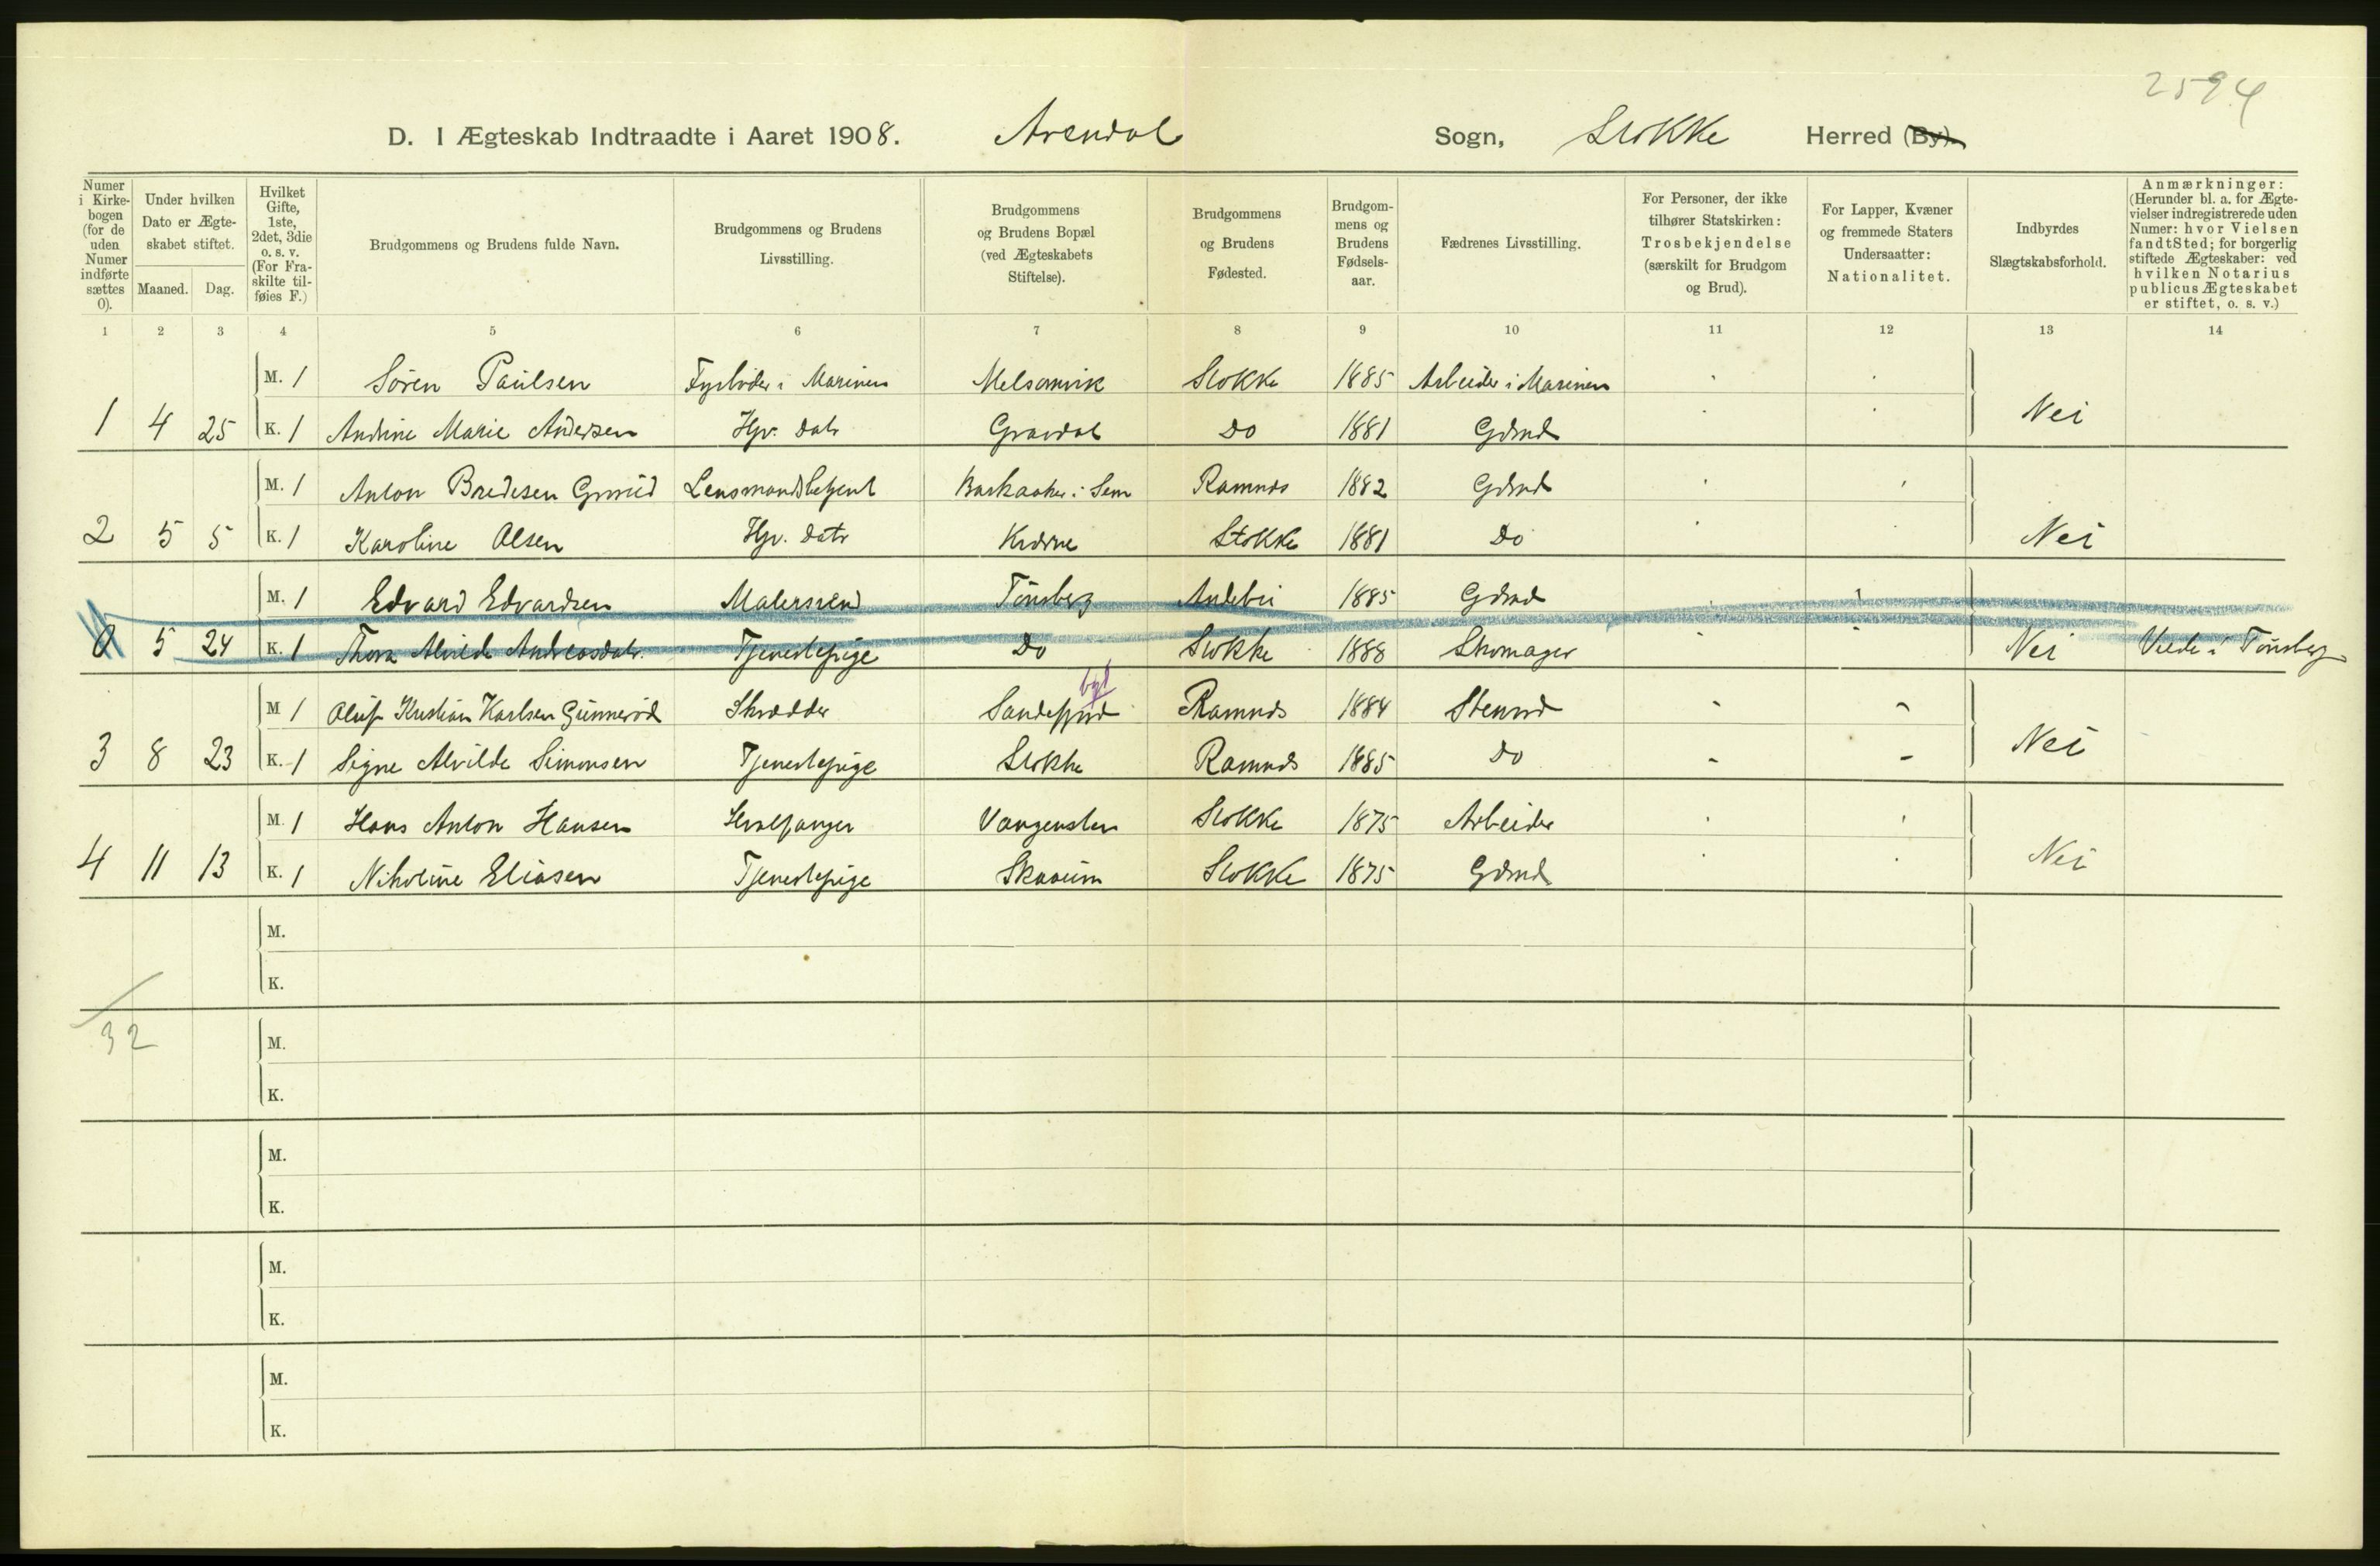 2594
D. I Ægteskab Indtraadte i Aaret 1908. Arendal Sogn, Stokke Herred (By).
Numer i Kirkebogen (for de uden Numer indførte sættes 0).
Under hvilken Dato er Ægteskabet stiftet.
Maaned. Dag.
Hvilket Gifte, 1ste, 2det, 3die o. s. v. (For Fraskilte tilføies F.)
Brudgommens og Brudens fulde Navn.
Brudgommens og Brudens Livsstilling.
Brudgommens og Brudens Bopæl (ved Ægteskabets Stiftelse).
Brudgommens og Brudens Fødested.
Brudgommens og Brudens Fødselsaar.
Fædrenes Livsstilling.
For Personer, der ikke tilhører Statskirken: Trosbekjendelse (særskilt for Brudgom og Brud).
For Lapper, Kvæner og fremmede Staters Undersaatter: Nationalitet.
Indbyrdes Slægtskabsforhold.
Anmærkninger: (Herunder bl. a. for Ægtevielser indregistrerede uden Numer: hvor Vielsen fandt Sted; for borgerlig stiftede Ægteskaber: ved hvilken Notarius publicus Ægteskabet er stiftet, o. s. v.)
1 2 3 4 5 6 7 8 9 10 11 12 13 14
M. 1 Sören Paulsen Fyrböder i Marinen Melsomvik Stokke 1885 Arbeider i Marinen
1 4 25 K. 1 Andrine Marie Andersen Hjv. datr Gravdal Do 1881 Gdmd Nei
M. 1 Anton Bredesen Lensmandsbetjent Barkaaker i Sem Ramnes 1882 Gdmd
2 5 5 K. 1 Karoline Olsen Hjv. datr Stokke 1881 Do Nei
M. 1 Edvard Edvardsen Malersvend Tönsberg Andebu 1885 Gdmd
0 5 24 K. 1 Thora Alvilde Andreasdatr. Tjenestepige Do Stokke 1888 Skomager Nei Viede i Tönsberg
M 1 Oluf Kristian Karlsen Gunneröd Skrædder Sandefjord Ramnes 1884
3 8 23 K. 1 Signe Alvilde Simonsen Tjenestepige Stokke Ramnes 1885 Do Nei
M. 1 Hans Anton Hansen Hvalfanger Vangensten Stokke 1875 Arbeider
4 11 13 K. 1 Nikoline Eliasen Tjenestepige Skaum Stokke 1875 Gdmd Nei
M.
K.
32
M.
K.
M.
K.
M.
K.
M.
K.